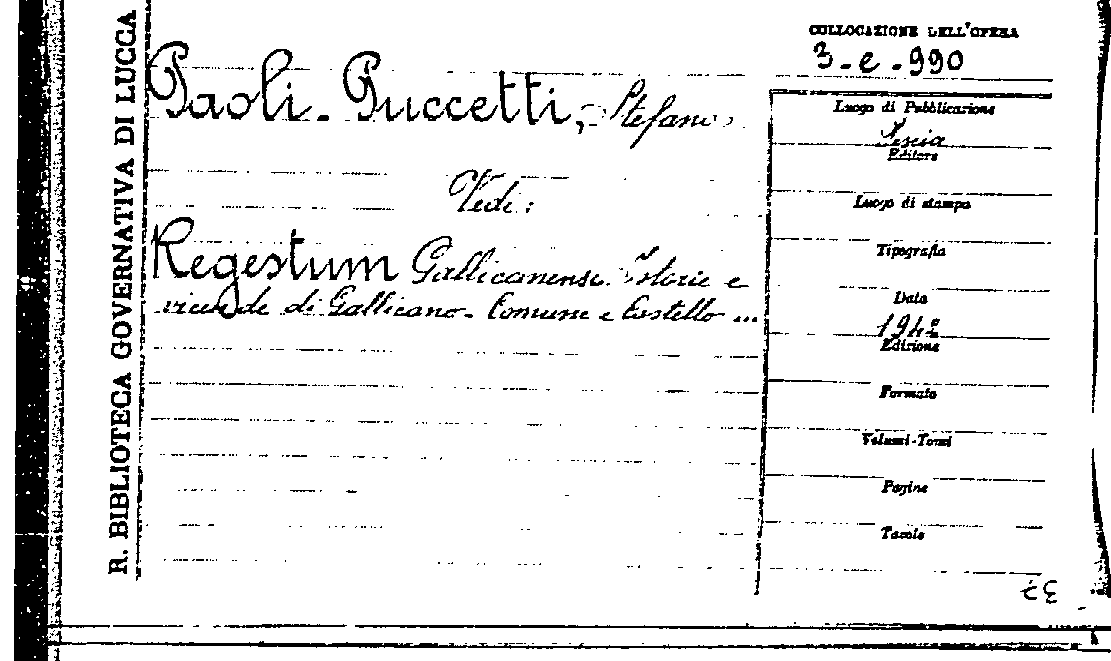 R. BIBLIOTECA GOVERNATIVA DI LUCCA
COLLOCAZIONE DELL'OPERA
3-e-990
Paoli-Puccetti, Stefano
Vedi:
Regestum Gallicanense. Istorie e
vicende di Gallicano-Comune e Castello ...
Luogo di Pubblicazione
Pescia
Editore
Luogo di stampa
Tipografia
Data
1942
Edizione
Formato
Volumi-Tomi
Pagine
Tavole